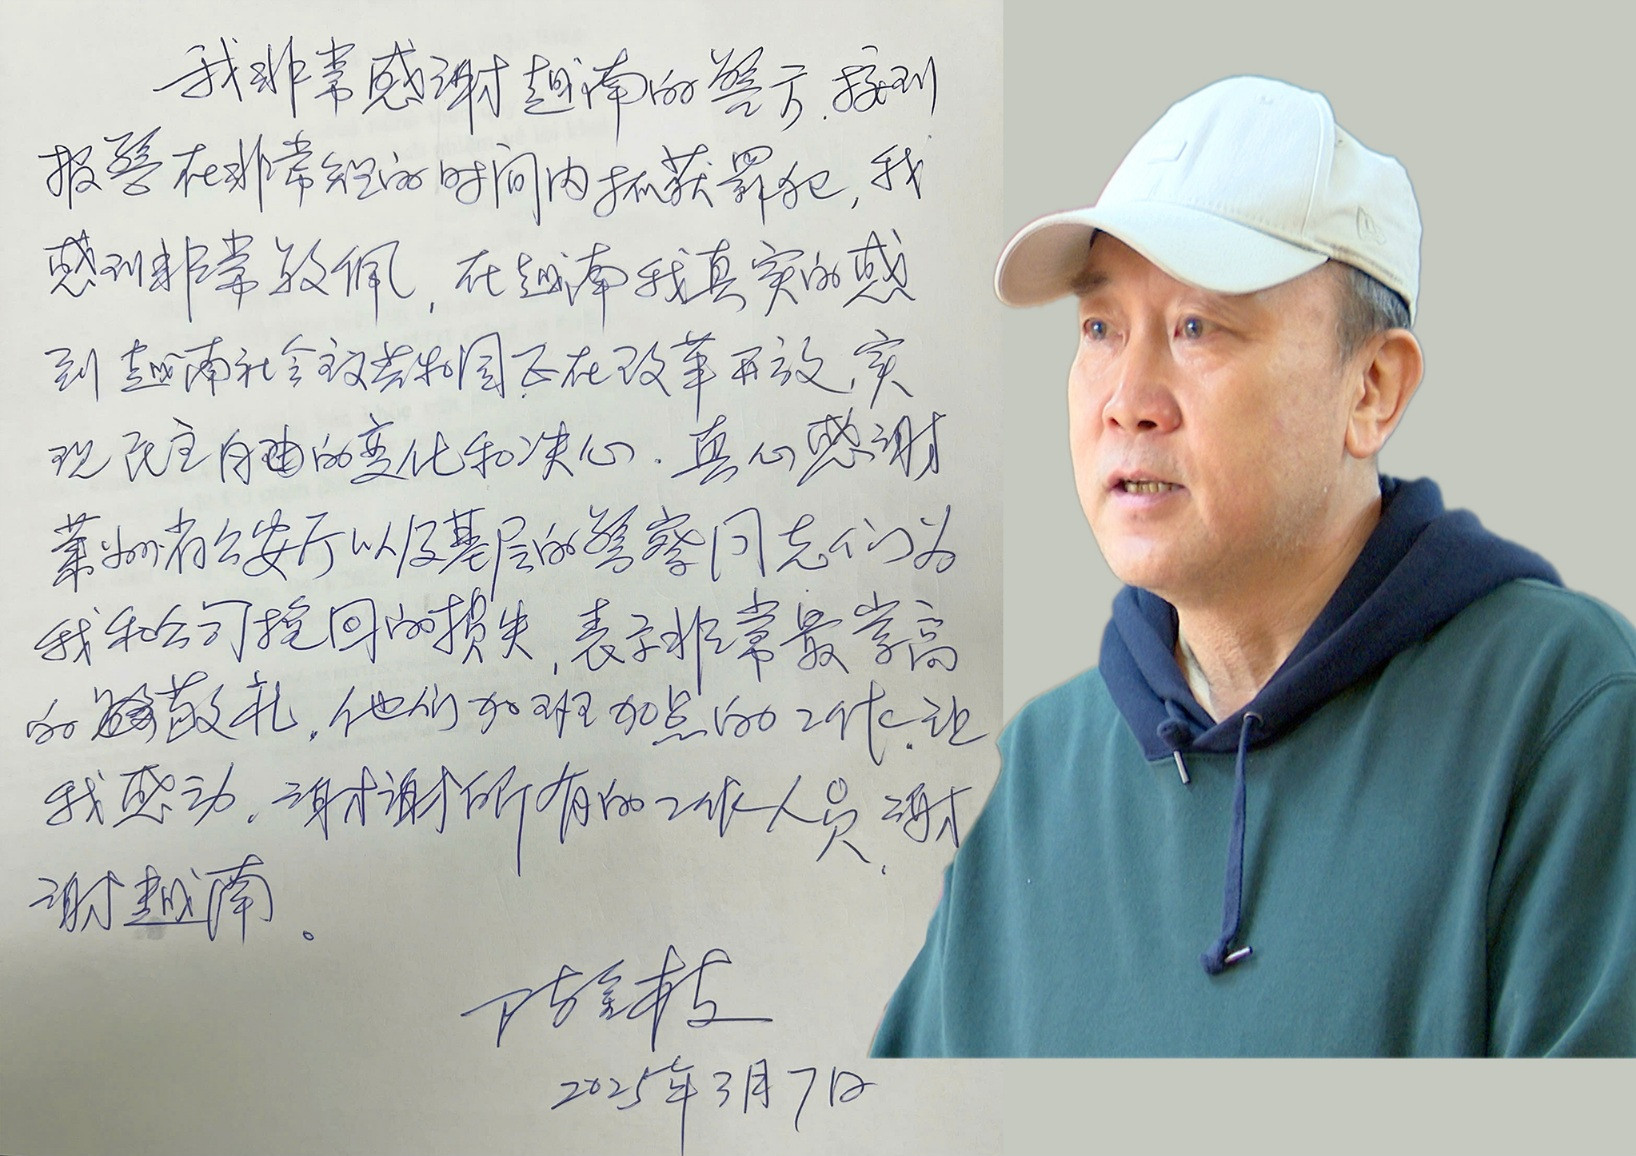 我非常感谢越南的警方,接到
报警在非常短的时间内抓获罪犯,我
感到非常敬佩,在越南我真实的感
到越南社会主义共和国正在改革开放,实
现民主自由的变化和决心.真心感谢
莱州省公安厅以及基层的警察同志们为
我和公司挽回的损失,表示非常最崇高
的敬礼.他们加班加点的工作.让
我感动.谢谢所有的工作人员,谢
谢越南。
2025年3月7日